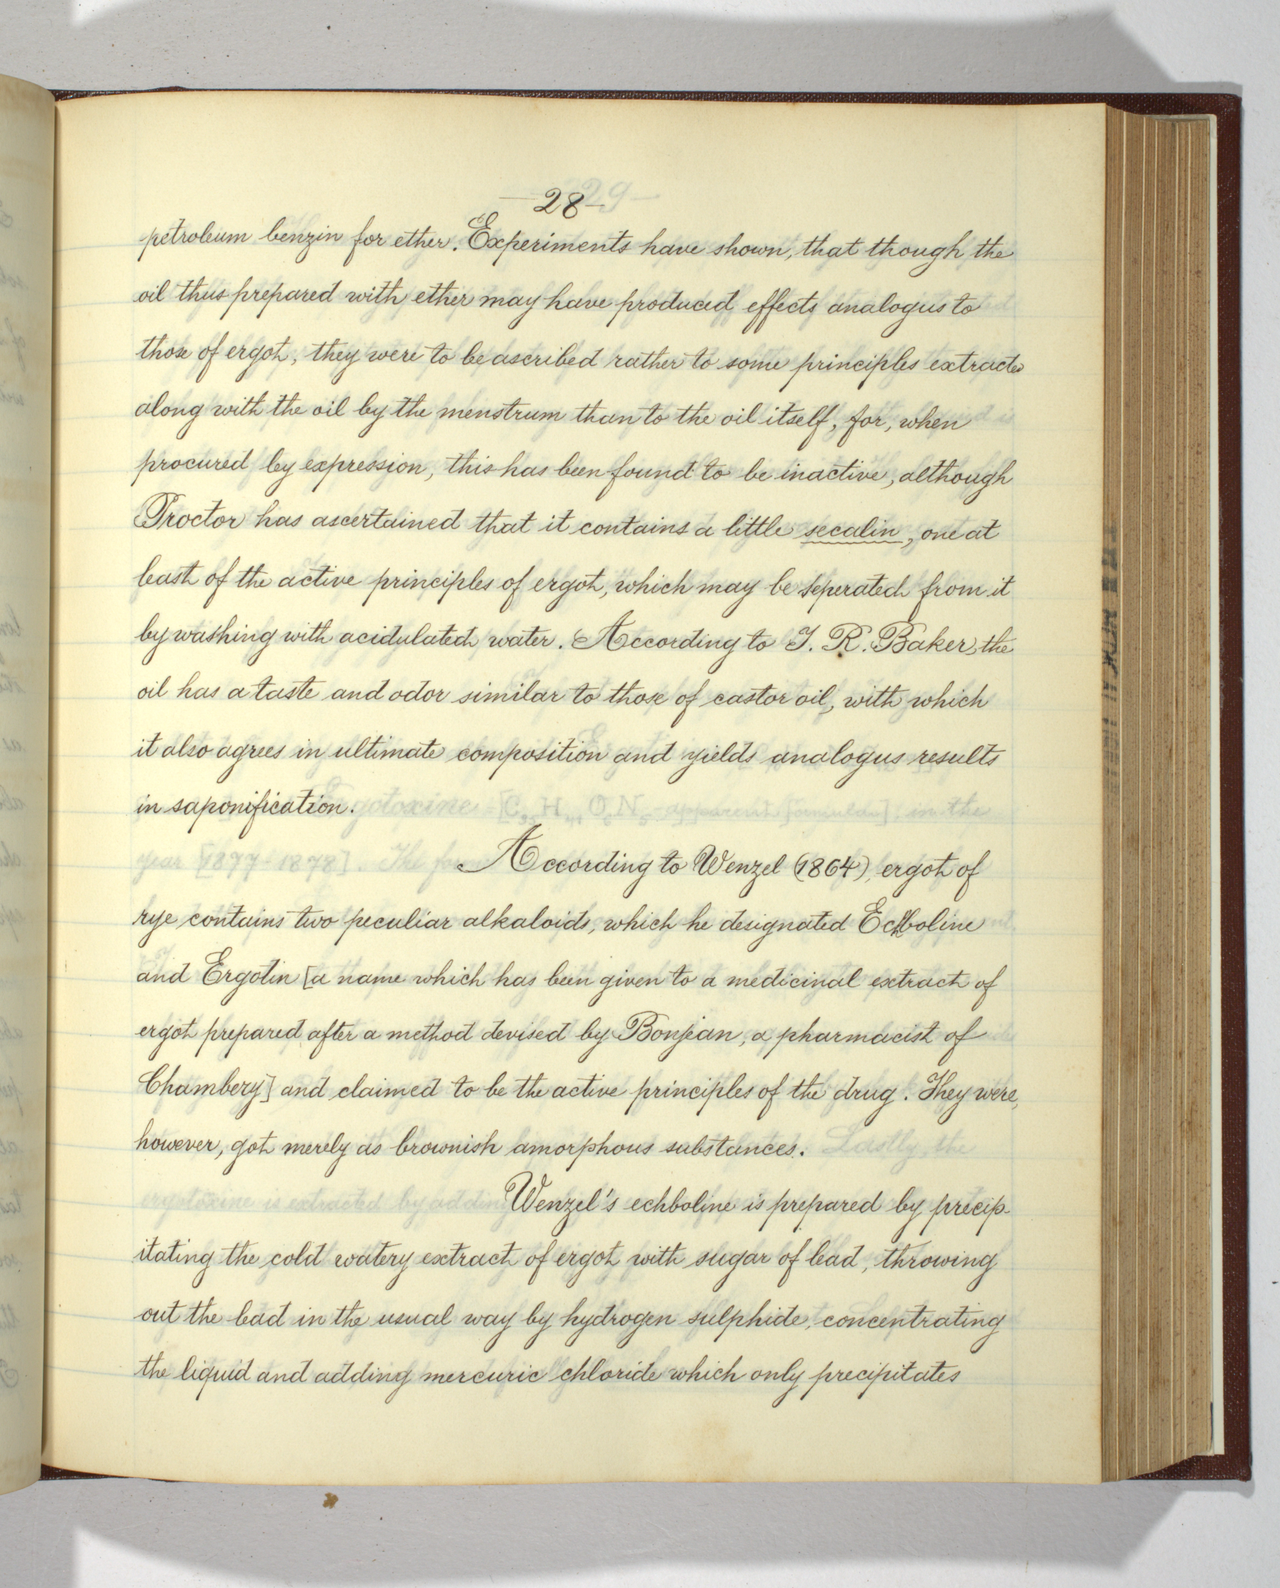 28
petroleum benzin for ether. Experiments have shown, that though the
oil thus prepared with ether may have produced effects analogus to
those of ergot, they were to be ascribed rather to some principles extracted
along with the oil by the menstrum than to the oil itself, for, when
procured by expression, this has been found to be inactive, although
Proctor has ascertained that it contains a little secalin, one at
least of the active principles of ergot, which may be seperated from it
by washing with acidulated water. According to T. R. Baker, the
oil has a taste and odor similar to those of castor oil, with which
it also agrees in ultimate composition and yields analogus results
in saponification.
According to Wenzel (1864), ergot of
rye contains two peculiar alkaloids, which he designated Ecboline
and Ergotin [a name which has been given to a medicinal extract of
ergot prepared after a method devised by Bonjean, a pharmacist of
Chambery] and claimed to be the active principles of the drug. They were,
however, got merely as brownish amorphous substances.
Wenzel's echboline is prepared by precip-
itating the cold watery extract of ergot with sugar of lead, throwing
out the lead in the usual way by hydrogen sulphide, concentrating
the liquid and adding mercuric chloride which only precipitates